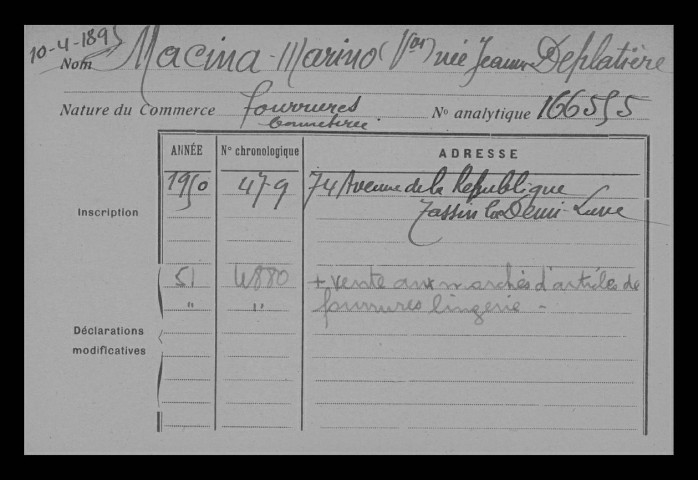 10-4-1895
Nom Macina-Marino (Vve) née Jeanne Deplatière
Nature du Commerce fourrures N° analytique 166555
bonneterie
ANNÉE N° chronologique ADRESSE
Inscription 1950 479 74 Avenue de la République
Tassin la Demi-Lune
51 4880 + vente aux marchés d'articles de
" " fourrures lingerie -
Déclarations
modificatives